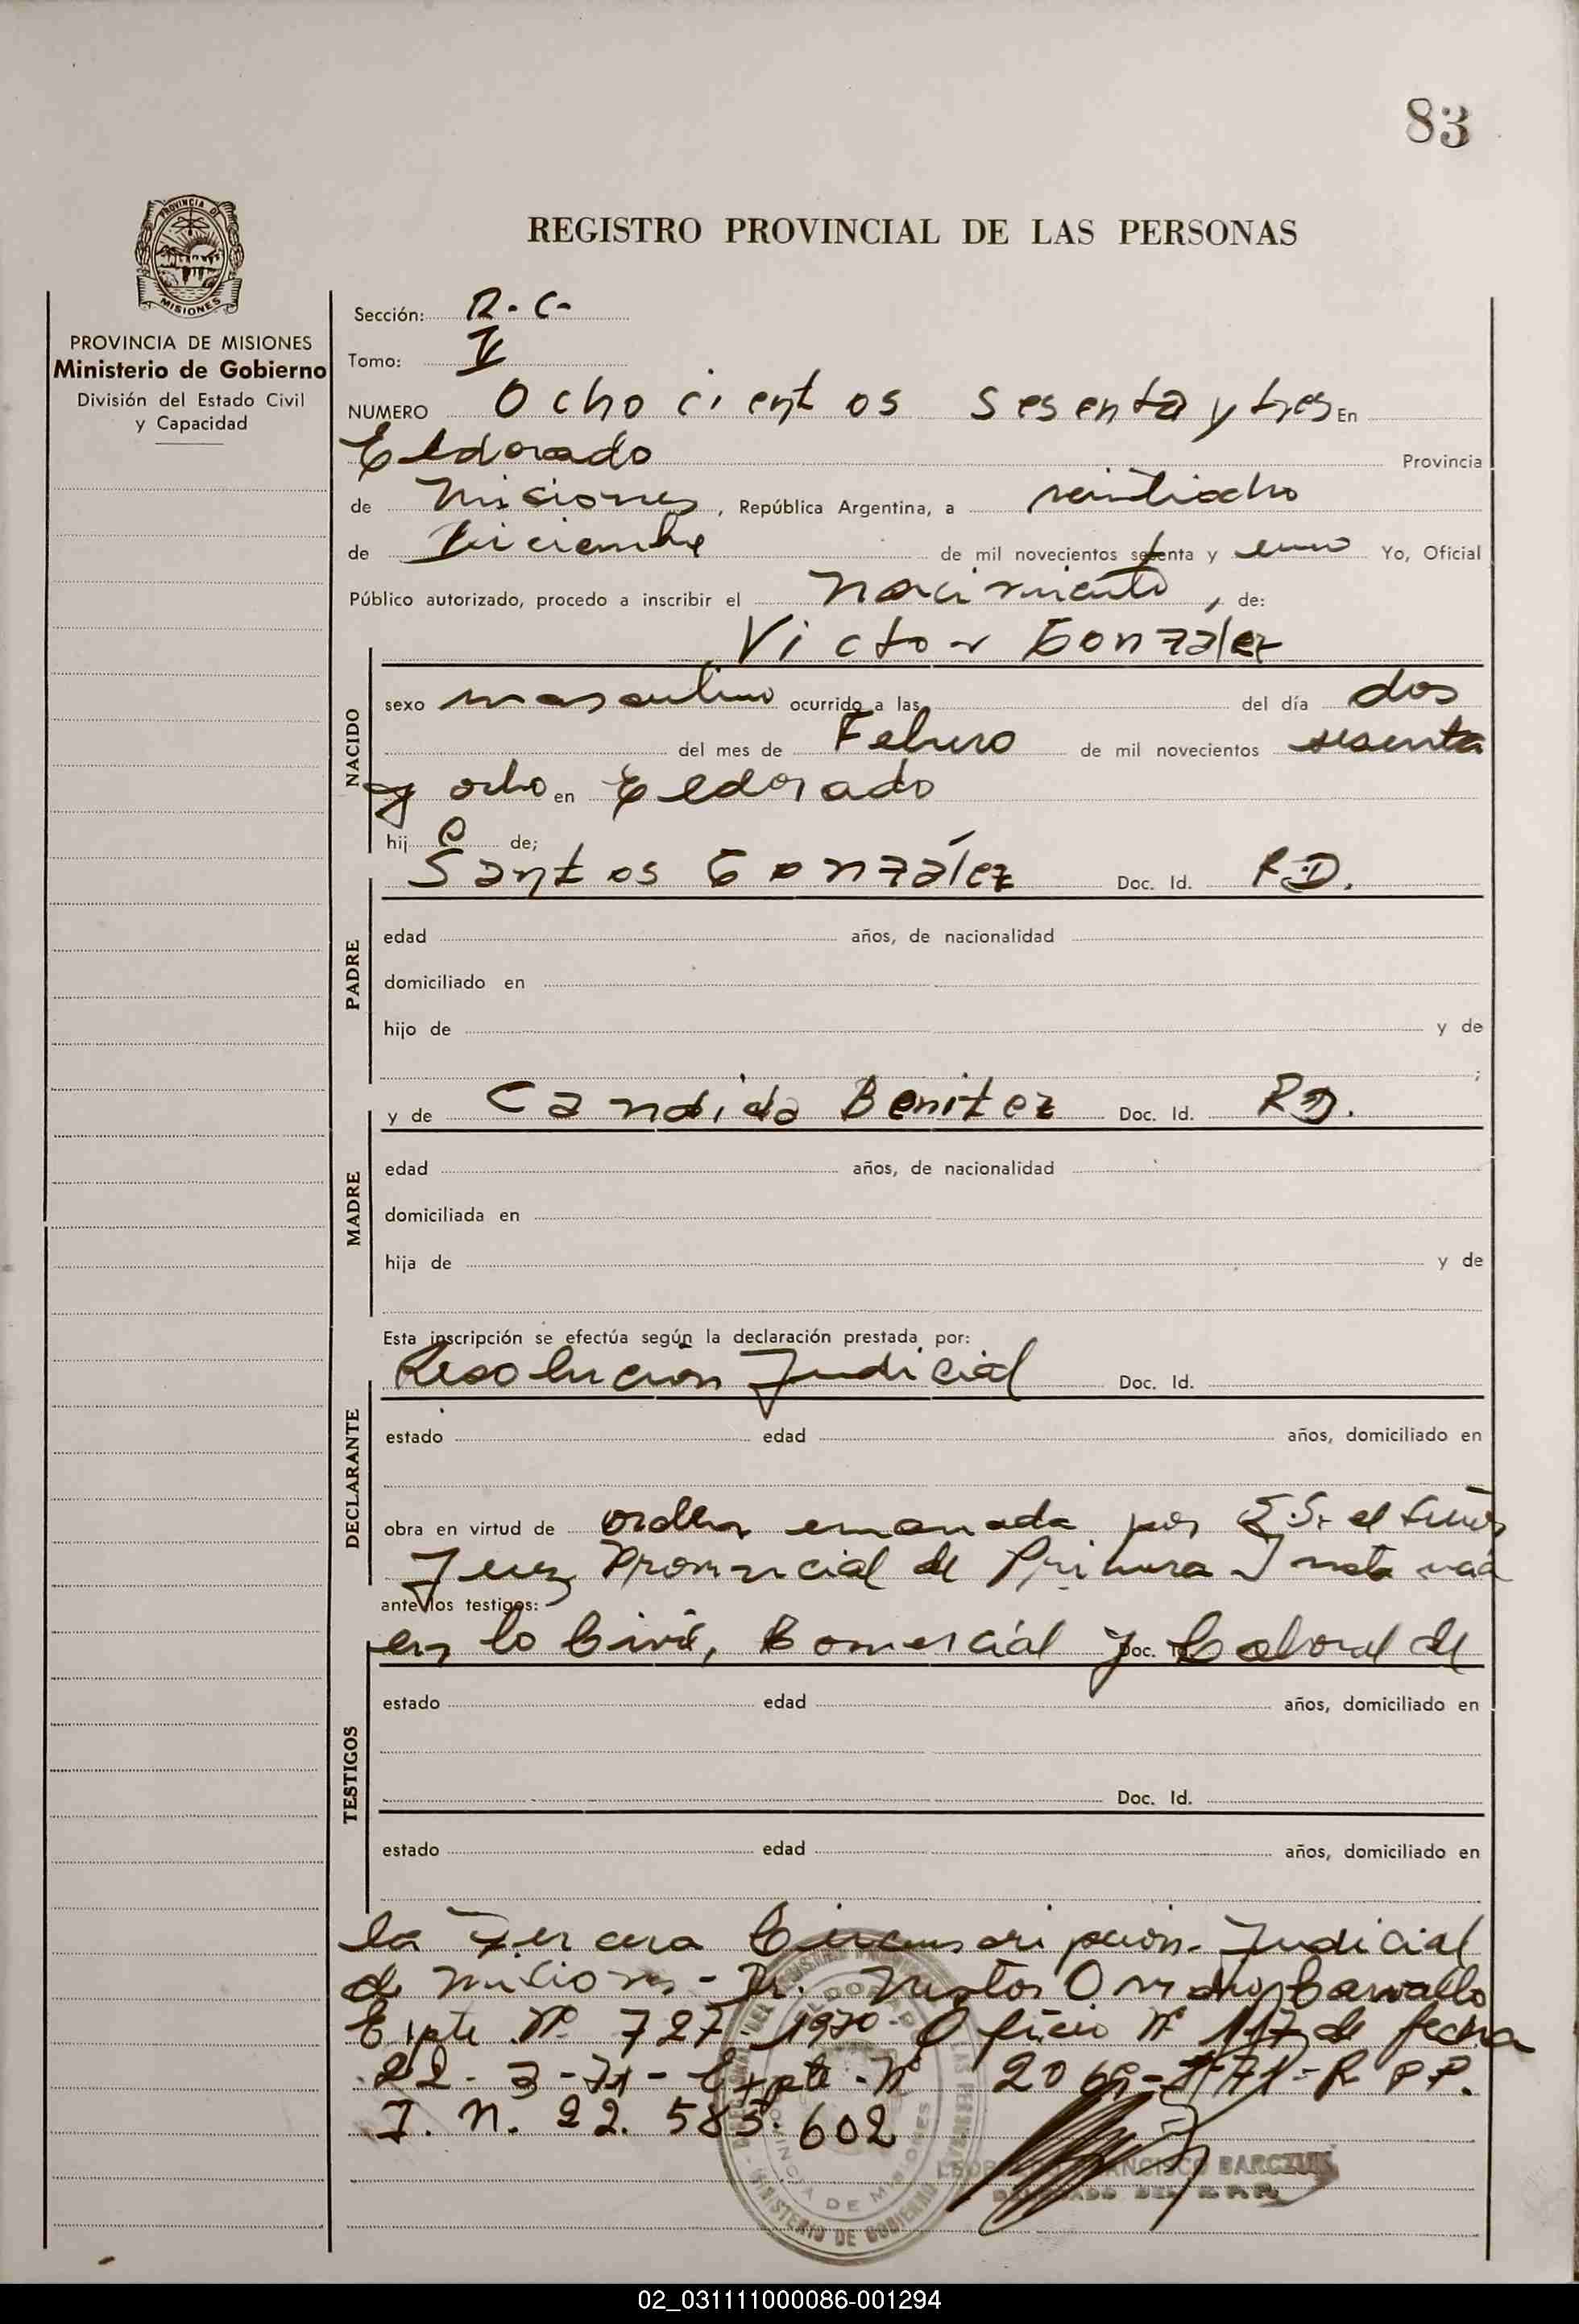 83
PROVINCIA DE MISIONES
MISIONES
PROVINCIA DE MISIONES
Ministerio de Gobierno
División del Estado Civil
y Capacidad
REGISTRO PROVINCIAL DE LAS PERSONAS
Sección: R. C.
Tomo: V
NUMERO Ochocientos sesenta y tres En
Eldorado Provincia
de Misiones, República Argentina, a veintiocho
de Diciembre de mil novecientos setenta y uno Yo, Oficial
Público autorizado, procedo a inscribir el nacimiento, de:
Victor González
NACIDO
sexo masculino ocurrido a las del día dos
del mes de Febrero de mil novecientos sesenta
y ocho en Eldorado
hijo de;
Santos González Doc. Id. R.D.
PADRE
edad años, de nacionalidad
domiciliado en
hijo de y de
;
y de Candida Benitez Doc. Id. R.D.
MADRE
edad años, de nacionalidad
domiciliada en
hija de y de
Esta inscripción se efectúa según la declaración prestada por:
Resolucion Judicial Doc. Id.
DECLARANTE
estado edad años, domiciliado en
obra en virtud de orden emanada por S.S. el Señor
Juez Provincial de Primera Instancia
ante los testigos:
en lo Civil, Comercial y Laboral de
Doc.
TESTIGOS
estado edad años, domiciliado en
Doc. Id.
estado edad años, domiciliado en
la Tercera Circunscripcion Judicial
de Misiones - Dr. Carvallo
Expte Nº 727-1970- Oficio Nº 117 de fecha
22-3-71- Expte. Nº R.P.P.
I. N. 22.585.602
ELDORADO
PROVINCIA DE MISIONES
MINISTERIO DE GOBIERNO
FRANCISCO BARCZUK
DELEGADO DEL R.P.P.
02_031111000086-001294